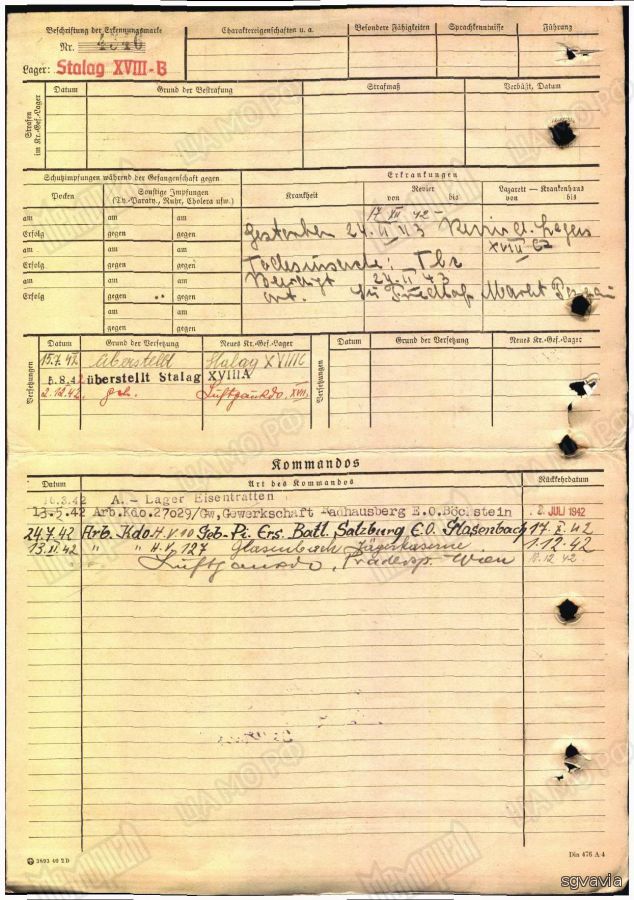 Beschriftung der Erkennungsmarke
Nr. 4646
Lager: Stalag XVIII-B
Charaktereigenschaften u. a.
Besondere Fähigkeiten
Sprachkenntnisse
Führung
Strafen im Kr.-Gef.-Lager
Datum
Grund der Bestrafung
Strafmaß
Verbüßt, Datum
Schutzimpfungen während der Gefangenschaft gegen
Erkrankungen
Pocken
Sonstige Impfungen
(Ty. Paraty., Ruhr, Cholera usw.)
Krankheit
Revier
von bis
Lazarett – Krankenhaus
von bis
am am am
Erfolg gegen gegen
am am am
Erfolg gegen gegen
am am am
Erfolg gegen gegen
am am
gegen gegen
17. XII 42 -
Gestorben 24. II 43 Revier d. Lagers
XVIII
Todesursache: Tbc
Beerdigt 24. II 43
Ort. Friedhof Markt
Versetzungen
Datum
Grund der Versetzung
Neues Kr.-Gef.-Lager
Datum
Grund der Versetzung
Neues Kr.-Gef.-Lager
Versetzungen
15.7.42 überstellt Stalag XVIII C
5.8.42 überstellt Stalag XVIIIA
2.12.42 Luftgaukdo. XVII
Kommandos
Datum
Art des Kommandos
Rückkehrdatum
.3.42 A. - Lager Eisentratten
13.5.42 Arb.Kdo.27029/Gw, Gewerkschaft Radhausberg E.O.Böckstein 2. JULI 1942
24.7.42 Arb. Kdo. H.V. 10 Geb. Pi. Ers. Batl. Salzburg E.O. Glasenbach 17. X. 42
13. XI 42 " " H.V. 127 Glasenbach Jägerkaserne 1.12.42
Luftgaukdo, Wien .12.42
3893 40 2 D
Din 476 A 4
ЦАМО РФ
sgvavia